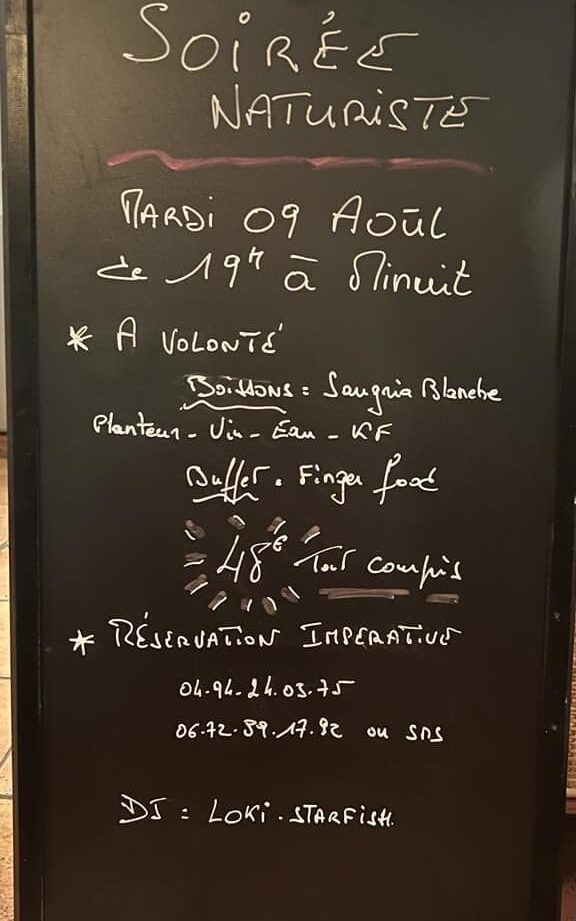 SOiRÉE
NATURiSTE
MARDi 09 AOÛt
de 19H à Minuit
* A VOLONTÉ
BOiSSONS : Sangria Blanche
Planteur - Vin - Eau - KF
Buffet . Finger food
48€ Tout compris
* RÉSERVATION IMPERATIVE
04.94.24.03.75
06.72.59.17.92 ou SMS
DJ : LOKi . STARFiSH.